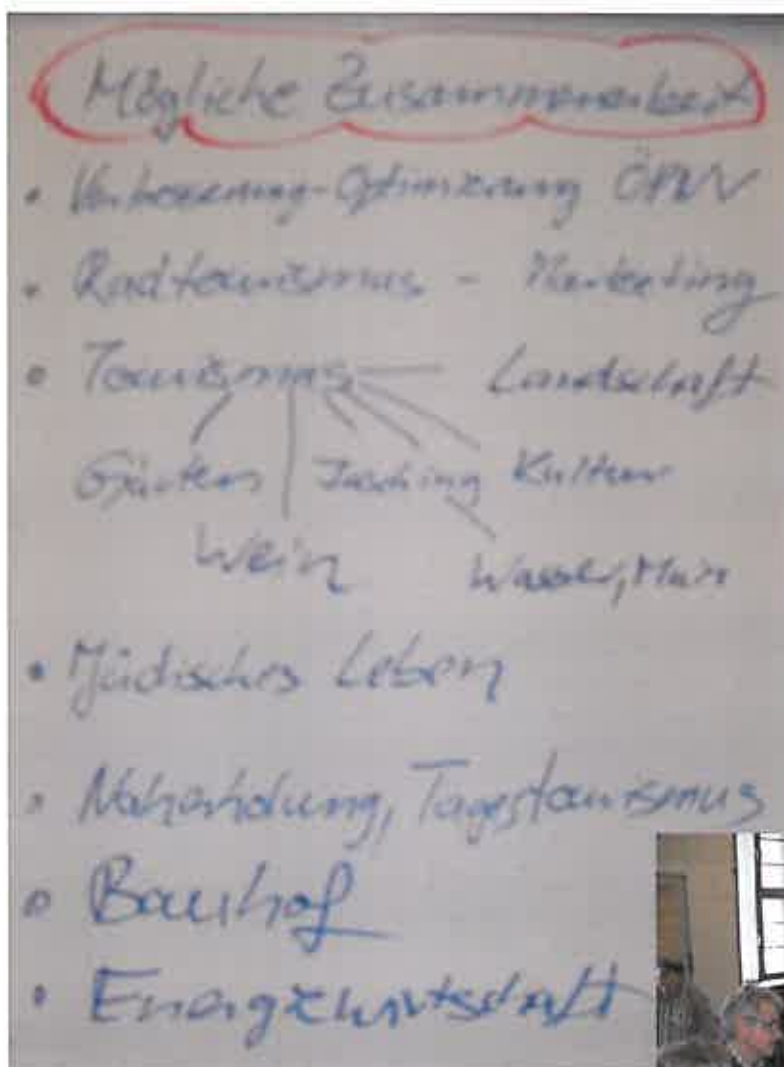 Mögliche Zusammenarbeit
• Verbesserung-Optimierung ÖPNV
• Radtourismus - Marketing
• Tourismus Landschaft
Gärten Fasching Kultur
Wein Wasser, Main
• Jüdisches Leben
• Naherholung, Tagestourismus
• Bauhof
• Energiewirtschaft